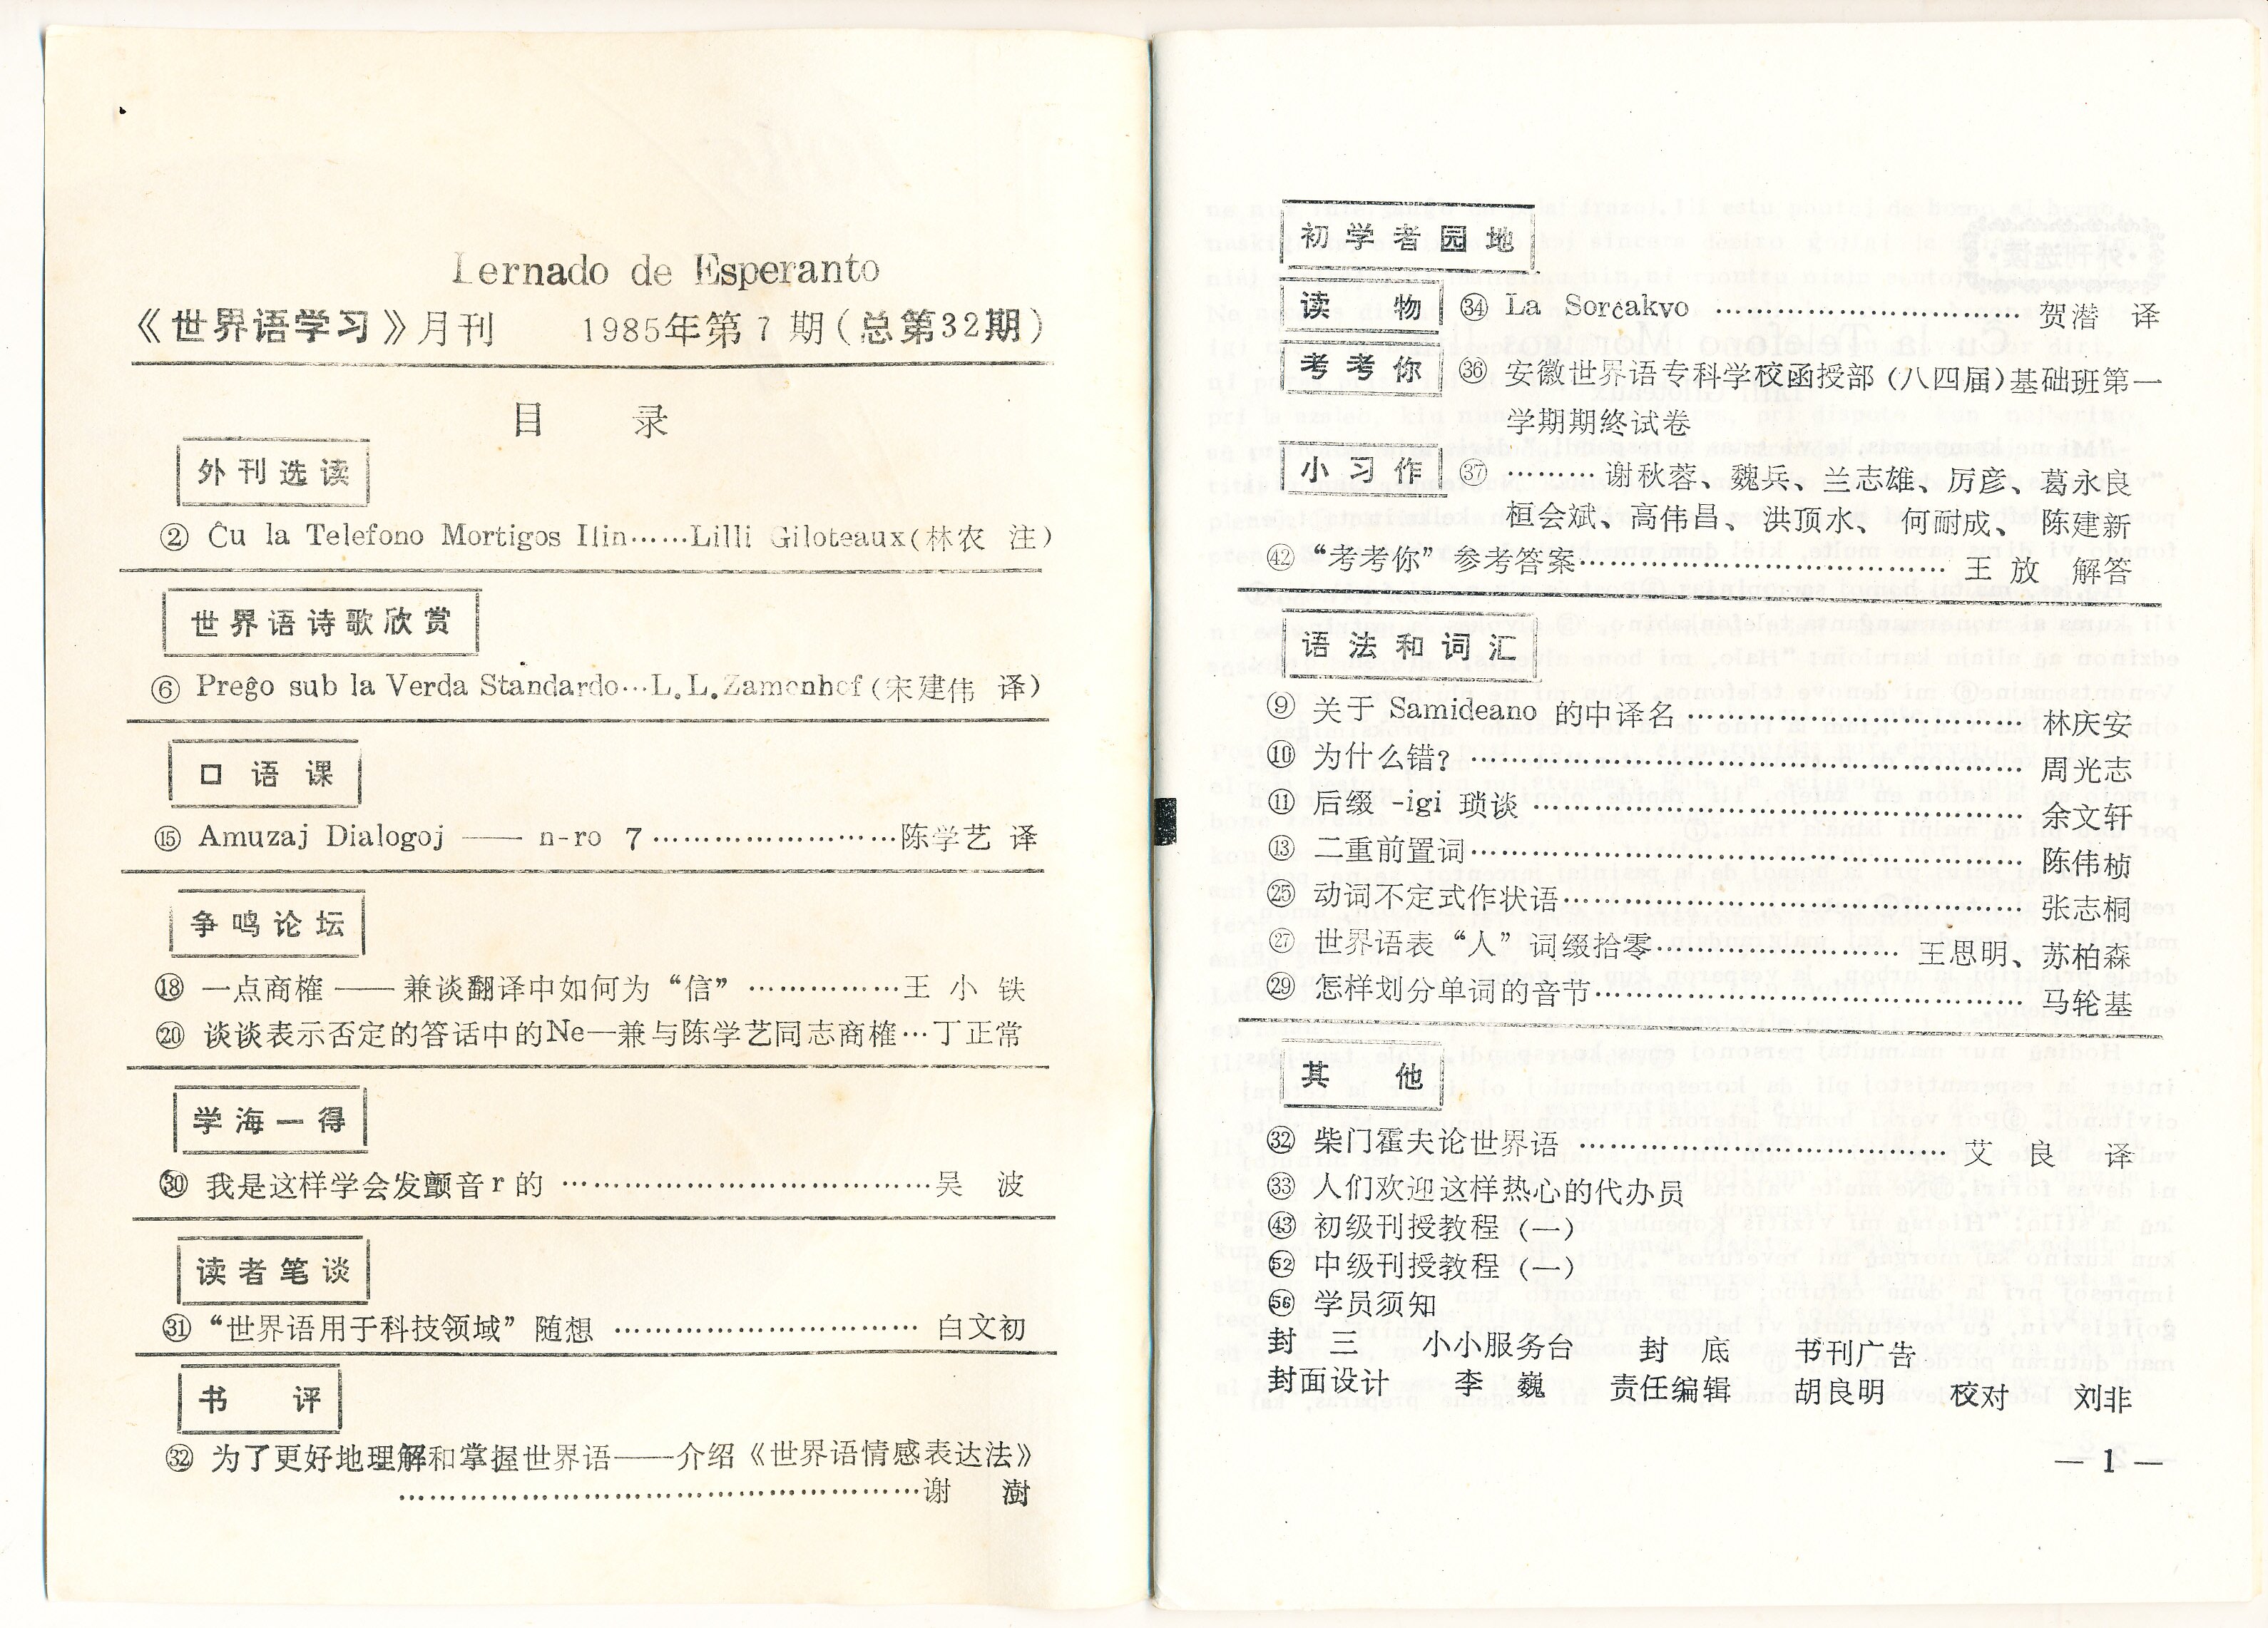 Lernado de Esperanto
《世界语学习》月刊 1985年第7期(总第32期)
目 录
外刊选读
② Ĉu la Telefono Mortigos Ilin……Lilli Giloteaux(林农 注)
世界语诗歌欣赏
⑥ Preĝo sub la Verda Standardo…L.L.Zamenhof(宋建伟 译)
口语课
⑮ Amuzaj Dialogoj —— n-ro 7……………………陈学艺 译
争鸣论坛
⑱ 一点商榷——兼谈翻译中如何为“信”……………王小铁
⑳ 谈谈表示否定的答话中的Ne—兼与陈学艺同志商榷…丁正常
学海一得
㉚ 我是这样学会发颤音r的………………………………吴 波
读者笔谈
㉛ “世界语用于科技领域”随想………………………… 白文初
书 评
㉜ 为了更好地理解和掌握世界语——介绍《世界语情感表达法》
………………………………………………谢 澍
初学者园地
读 物 ㉞ La Sorĉakvo ………………………… 贺潜 译
考考你 ㊱ 安徽世界语专科学校函授部(八四届)基础班第一
学期期终试卷
小习作 ㊲ ……… 谢秋蓉、魏兵、兰志雄、厉彦、葛永良
桓会斌、高伟昌、洪顶水、何耐成、陈建新
㊷ “考考你”参考答案……………………………… 王 放 解答
语法和词汇
⑨ 关于 Samideano 的中译名…………………………… 林庆安
⑩ 为什么错?……………………………………………… 周光志
⑪ 后缀 -igi 琐谈………………………………………… 余文轩
⑬ 二重前置词……………………………………………… 陈伟桢
㉕ 动词不定式作状语……………………………………… 张志桐
㉗ 世界语表“人”词缀拾零…………………… 王思明、苏柏森
㉙ 怎样划分单词的音节…………………………………… 马轮基
其 他
㉜ 柴门霍夫论世界语……………………………… 艾 良 译
㉝ 人们欢迎这样热心的代办员
㊸ 初级刊授教程(一)
52 中级刊授教程(一)
56 学员须知
封 三 小小服务台 封 底 书刊广告
封面设计 李 巍 责任编辑 胡良明 校对 刘非
— 1 —